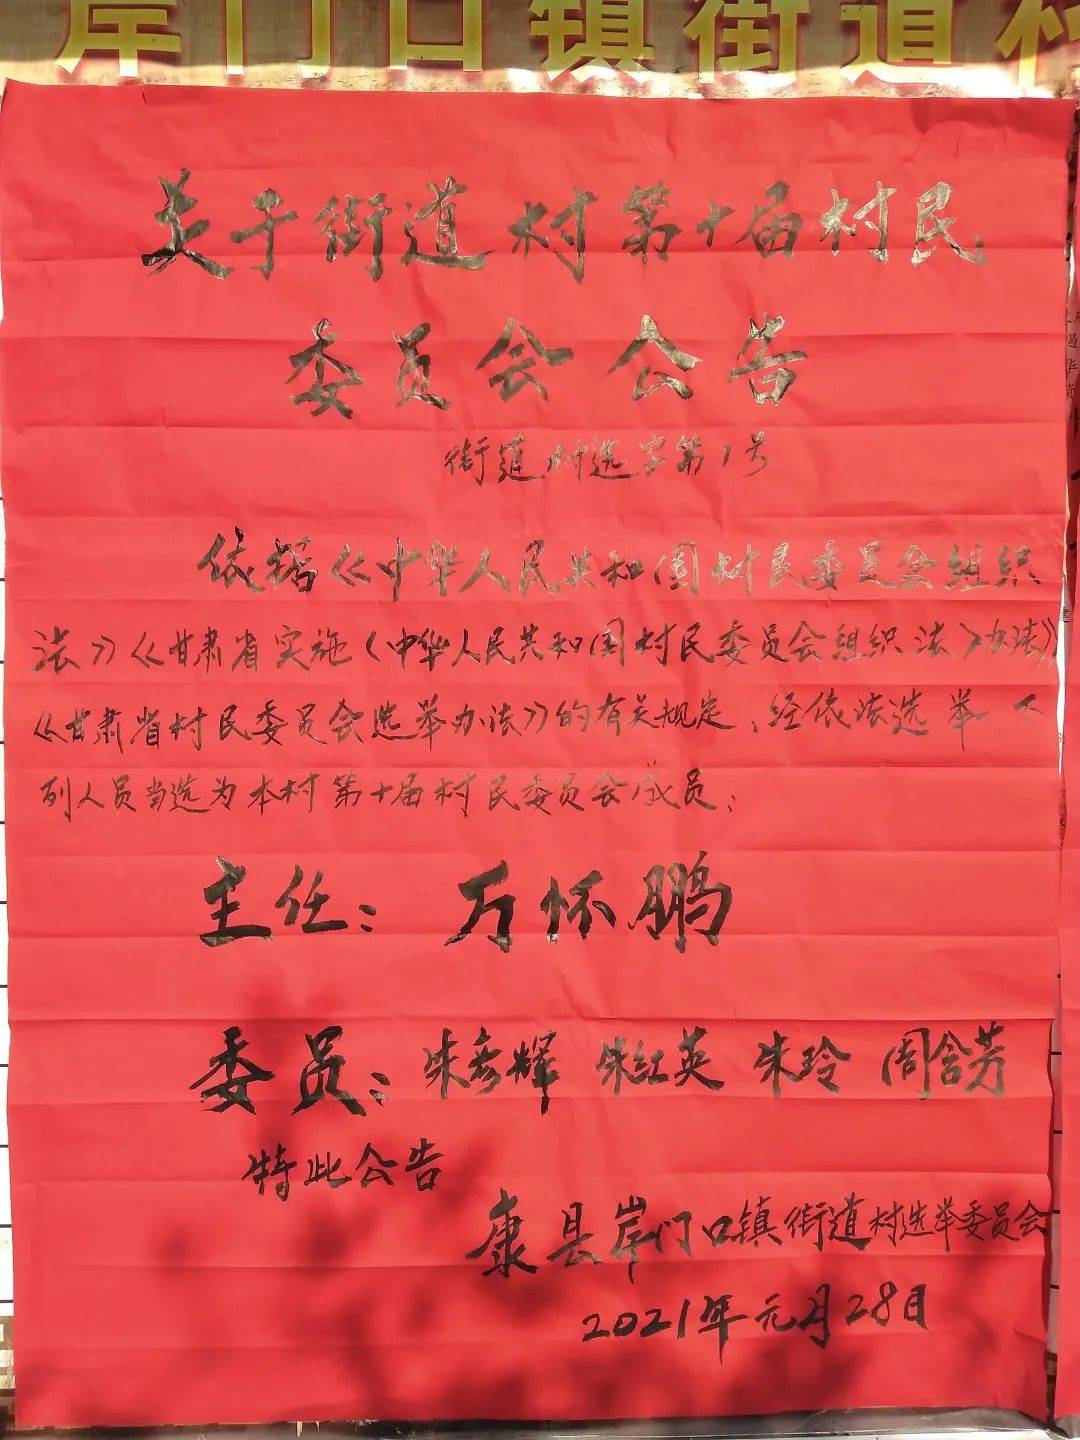 岸门口镇街道村
关于街道村第十届村民
委员会公告
街道村选字第1号
依据《中华人民共和国村民委员会组织
法》《甘肃省实施〈中华人民共和国村民委员会组织法〉办法》
《甘肃省村民委员会选举办法》的有关规定、经依法选举下
列人员当选为本村第十届村民委员会成员：
主任：万怀鹏
委员：朱彦辉 朱红英 朱玲 周含芳
特此公告
康县岸门口镇街道村选举委员会
2021年元月28日